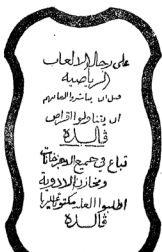 على رجال الالعاب
الرياضية
قبل ان يباشروا العابهم
ان يتناولوا اقراص
ڤالدة
تباع في جميع الاجزخانات
ومخازن الادوية
اطلبوا العلبة مكتوب عليها
ڤالدة